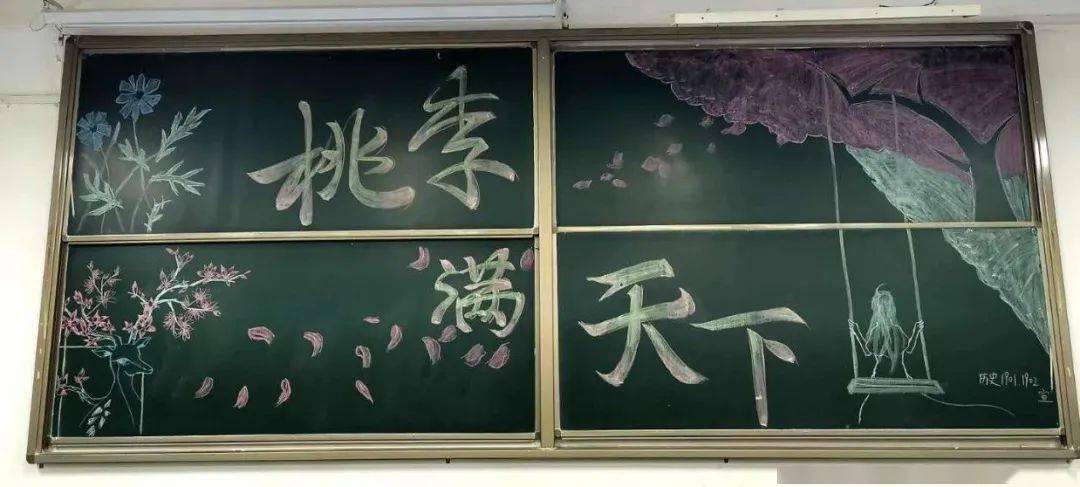 桃李
满
天下
历史1901.1902
宣